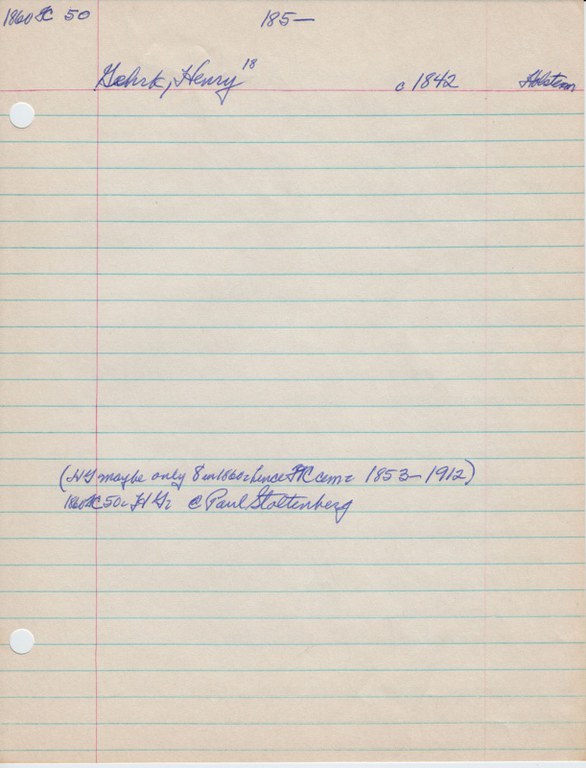 1860 TC 50 185—
Gehrk, Henry 18 c 1842 Holstein
(HG maybe only 8 in 1860, hence TC cem: 1853–1912)
1860 TC 50: HG: c Paul Stoltenberg